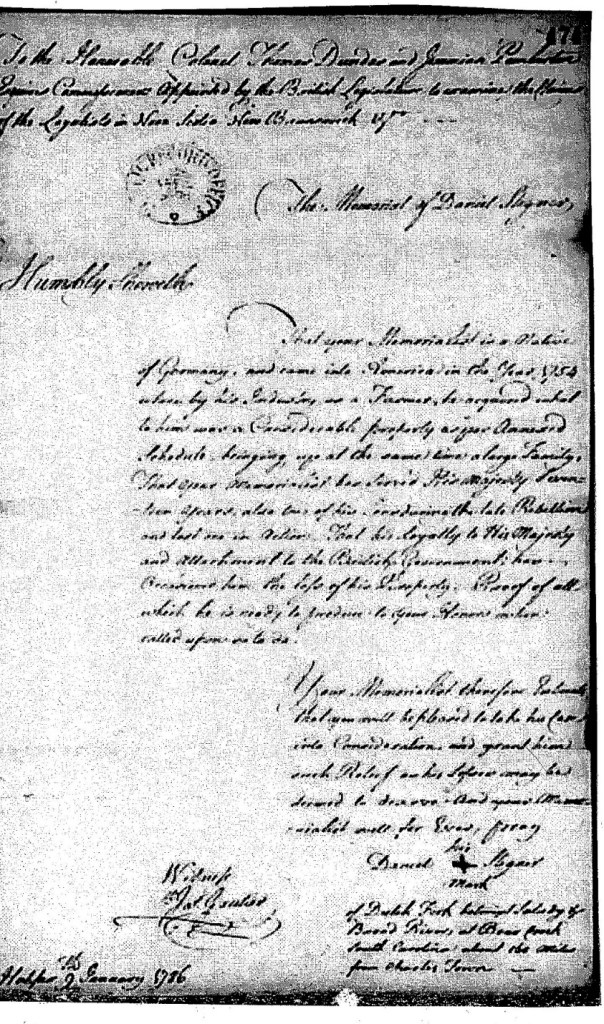 171
To the Honorable Colonel Thomas Dundas and Jeremiah Pemberton
Esquires Commissioners Appointed by the British Legislature to examine the Claims
of the Loyalists in Nova Scotia New Brunswick &ca
The Memorial of Daniel
Humbly Sheweth
That your Memorialist is a Native
of Germany, and came into America in the Year 1754
where by his Industry as a Farmer, he acquired what
to him was a Considerable property as per Annexed
Schedule bringing up at the same time a large Family.
That your Memorialist has Served His Majesty
Years, also two of his Sons during the late Rebellion
and lost one in Action. That his loyalty to His Majesty
and attachment to the British Government, have
Occasioned him the loss of his Property. Proof of all
which he is ready to produce to your Honors when
called upon so to do.
Your Memorialist therefore Intreats
that you will be pleased to take his Case
into Consideration and grant him
such Relief as his Losses may be
deemed to deserve. And your Mem-
orialist will for Ever, pray
his
Daniel +
Mark
Witness
of Dutch Fork between Saludy &
Broad River, at Bear Creek
South Carolina about Miles
from Charles Town
Halifax 2d January 1786